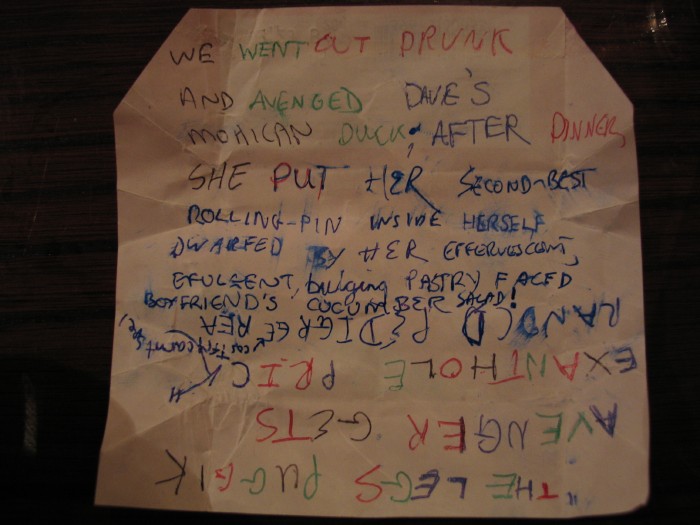 WE WENT OUT DRUNK
AND AVENGED DAVE'S
MOHICAN DUCK; AFTER DINNER,
SHE PUT HER SECOND-BEST
ROLLING-PIN INSIDE HERSELF
DWARFED BY HER EFFERVESCENT,
EFULGENT, bulging PASTRY FACED
BOYFRIEND'S CUCUMBER SALAD!
"THE LEGS PUGGIK
AVENGER GETS
EXANTHOLE PRICK
PEDIGREE REA